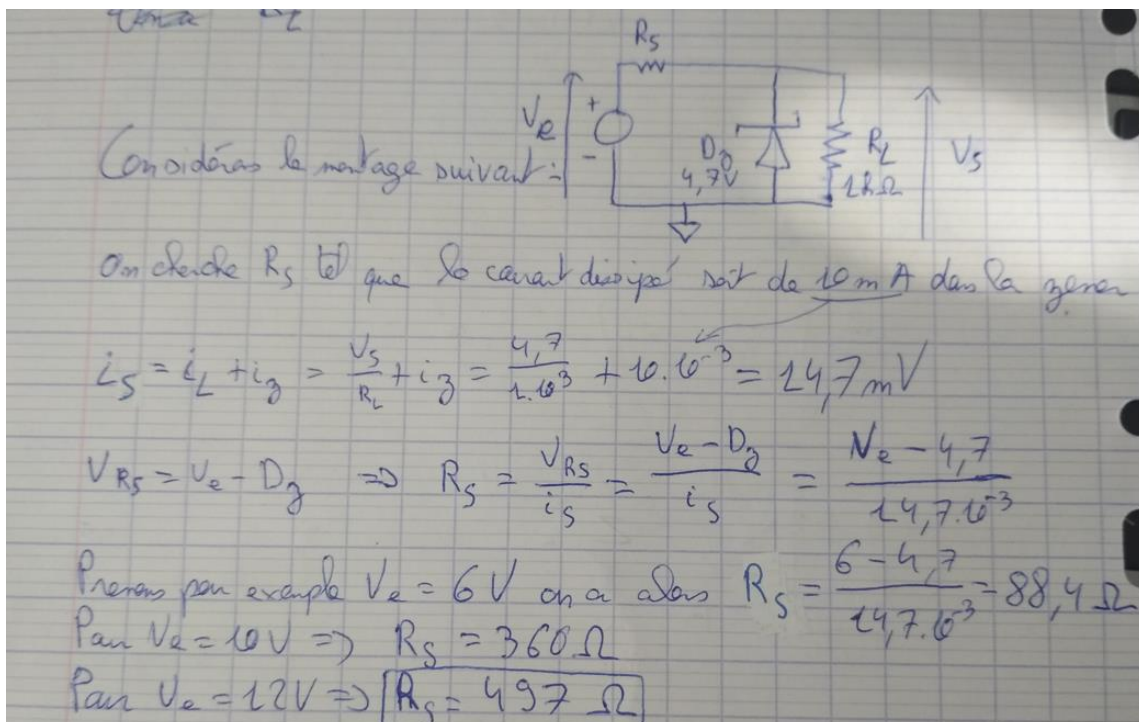 R_S
V_e
+
-
D_z
4,7V
R_L
1kΩ
V_S
Considérons le montage suivant :
On cherche R_S tel que le courant dissipé soit de 10 mA dans la zener
i_S = i_L + i_z = V_S/R_L + i_z = 4,7/1.10^3 + 10.10^-3 = 14,7 mV
V_RS = V_e - D_z => R_S = V_RS/i_S = V_e - D_z/i_S = V_e - 4,7/14,7.10^-3
Prenons par exemple V_e = 6V on a alors R_S = 6 - 4,7/14,7.10^-3 = 88,4 Ω
Pour V_e = 10V => R_S = 360 Ω
Pour V_e = 12V => R_S = 497 Ω